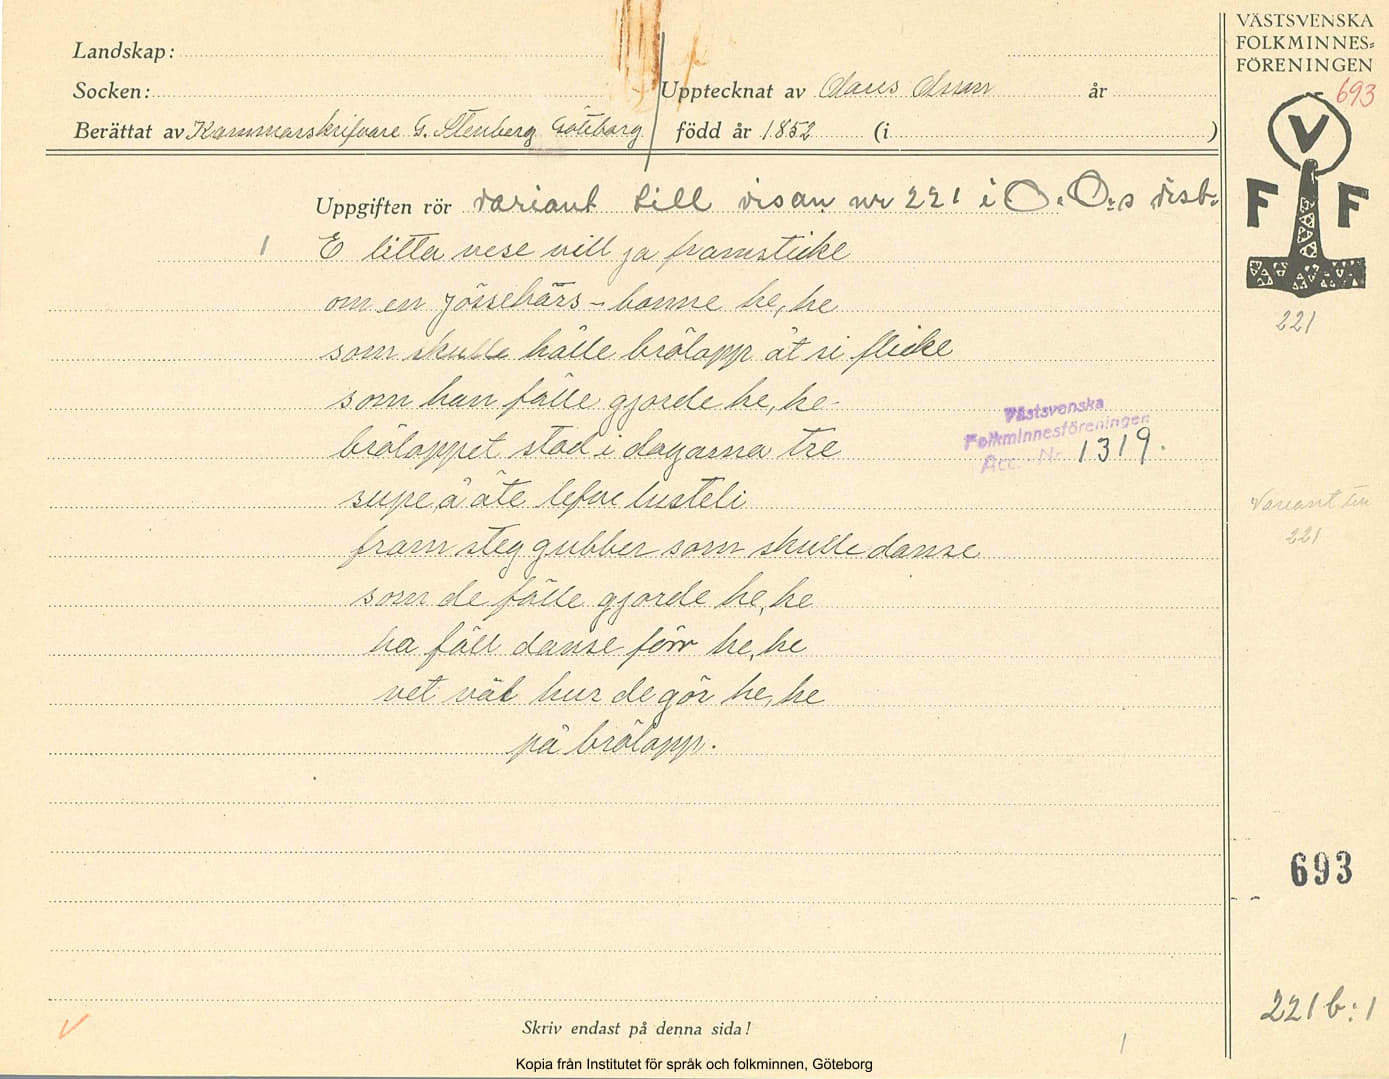 VÄSTSVENSKA
FOLKMINNES-
FÖRENINGEN
693
V
F F
221
Landskap:
Socken:
Upptecknat av Olaus Olsson år
Berättat av Kammarskrifvare G. Stenberg Göteborg född år 1852 (i )
Uppgiften rör variant till visan nr 221 i O. O:s visb:
1 E litta vese vill ja framsticke
om en jössehärs-bonne he, he
som skulle hälle brölopp åt si flicke
som han fälle gjorde he, he-
bröloppet stod i dagarna tre
supe å äte lefve lusteli
fram steg gubber som skulle danse
som de fälle gjorde he, he
ha fäll danse förr he, he
vet väl hur de gör he, he
på brölopp.
Västsvenska
Folkminnesföreningen
Acc. Nr. 1319.
Variant till
221
693
221 b: 1
Skriv endast på denna sida!
1
Kopia från Institutet för språk och folkminnen, Göteborg